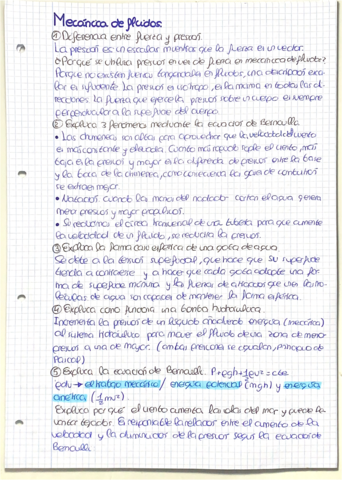 Mecánica de fluidos.
① Diferencia entre fuerza y presión.
La presión es un escalar mientras que la fuerza es un vector.
¿Porqué se utiliza presión en vez de fuerza en mecánica de fluidos?
Porque no existen fuerzas tangenciales en fluidos, una descripción esca-
lar es suficiente. La presión es isótropa, es la misma en todas las di-
recciones. La fuerza que ejerce la presión sobre un cuerpo es siempre
perpendicular a la superficie del cuerpo.
② Explica 3 fenómenos mediante la ecuación de Bernoulli.
• Las chimeneas son altas para aprovechar que la velocidad del viento
es más constante y elevada. Cuanto más rápido sople el viento, más
baja es la presión y mayor es la diferencia de presión entre la base
y la boca de la chimenea, como consecuencia los gases de combustión
se extraen mejor.
• Natación: cuando las manos del nadador cortan el agua generan
menor presión y mayor propulsión.
• Se reduce el área transversal de una tubería para que aumente
la velocidad de un fluido, se reducirá la presión.
③ Explica la forma casi esférica de una gota de agua.
Se debe a la tensión superficial, que hace que su superficie
tienda a contraerse y a hacer que cada gota adopte una for-
ma de superficie mínima y las fuerzas de atracción que unen las mo-
léculas de agua son capaces de mantener la forma esférica.
④ Explica como funciona una bomba hidráulica.
Incrementa la presión de un líquido añadiendo energía (mecánica)
al sistema hidráulico para mover el fluido de una zona de menor
presión a una de mayor. (ambas presiones se igualan, principio de
Pascal)
⑤ Explica la ecuación de Bernoulli. P+ρgh+½ρv²=cte.
pdv → el trabajo mecánico/ energía potencial (mgh) y energía
cinética (½mv²).
Explica por qué el viento aumenta las olas del mar y puede le-
vantar tejados. Es responsable la relación entre el aumento de la
velocidad y la disminución de la presión según la ecuación de
Bernoulli.